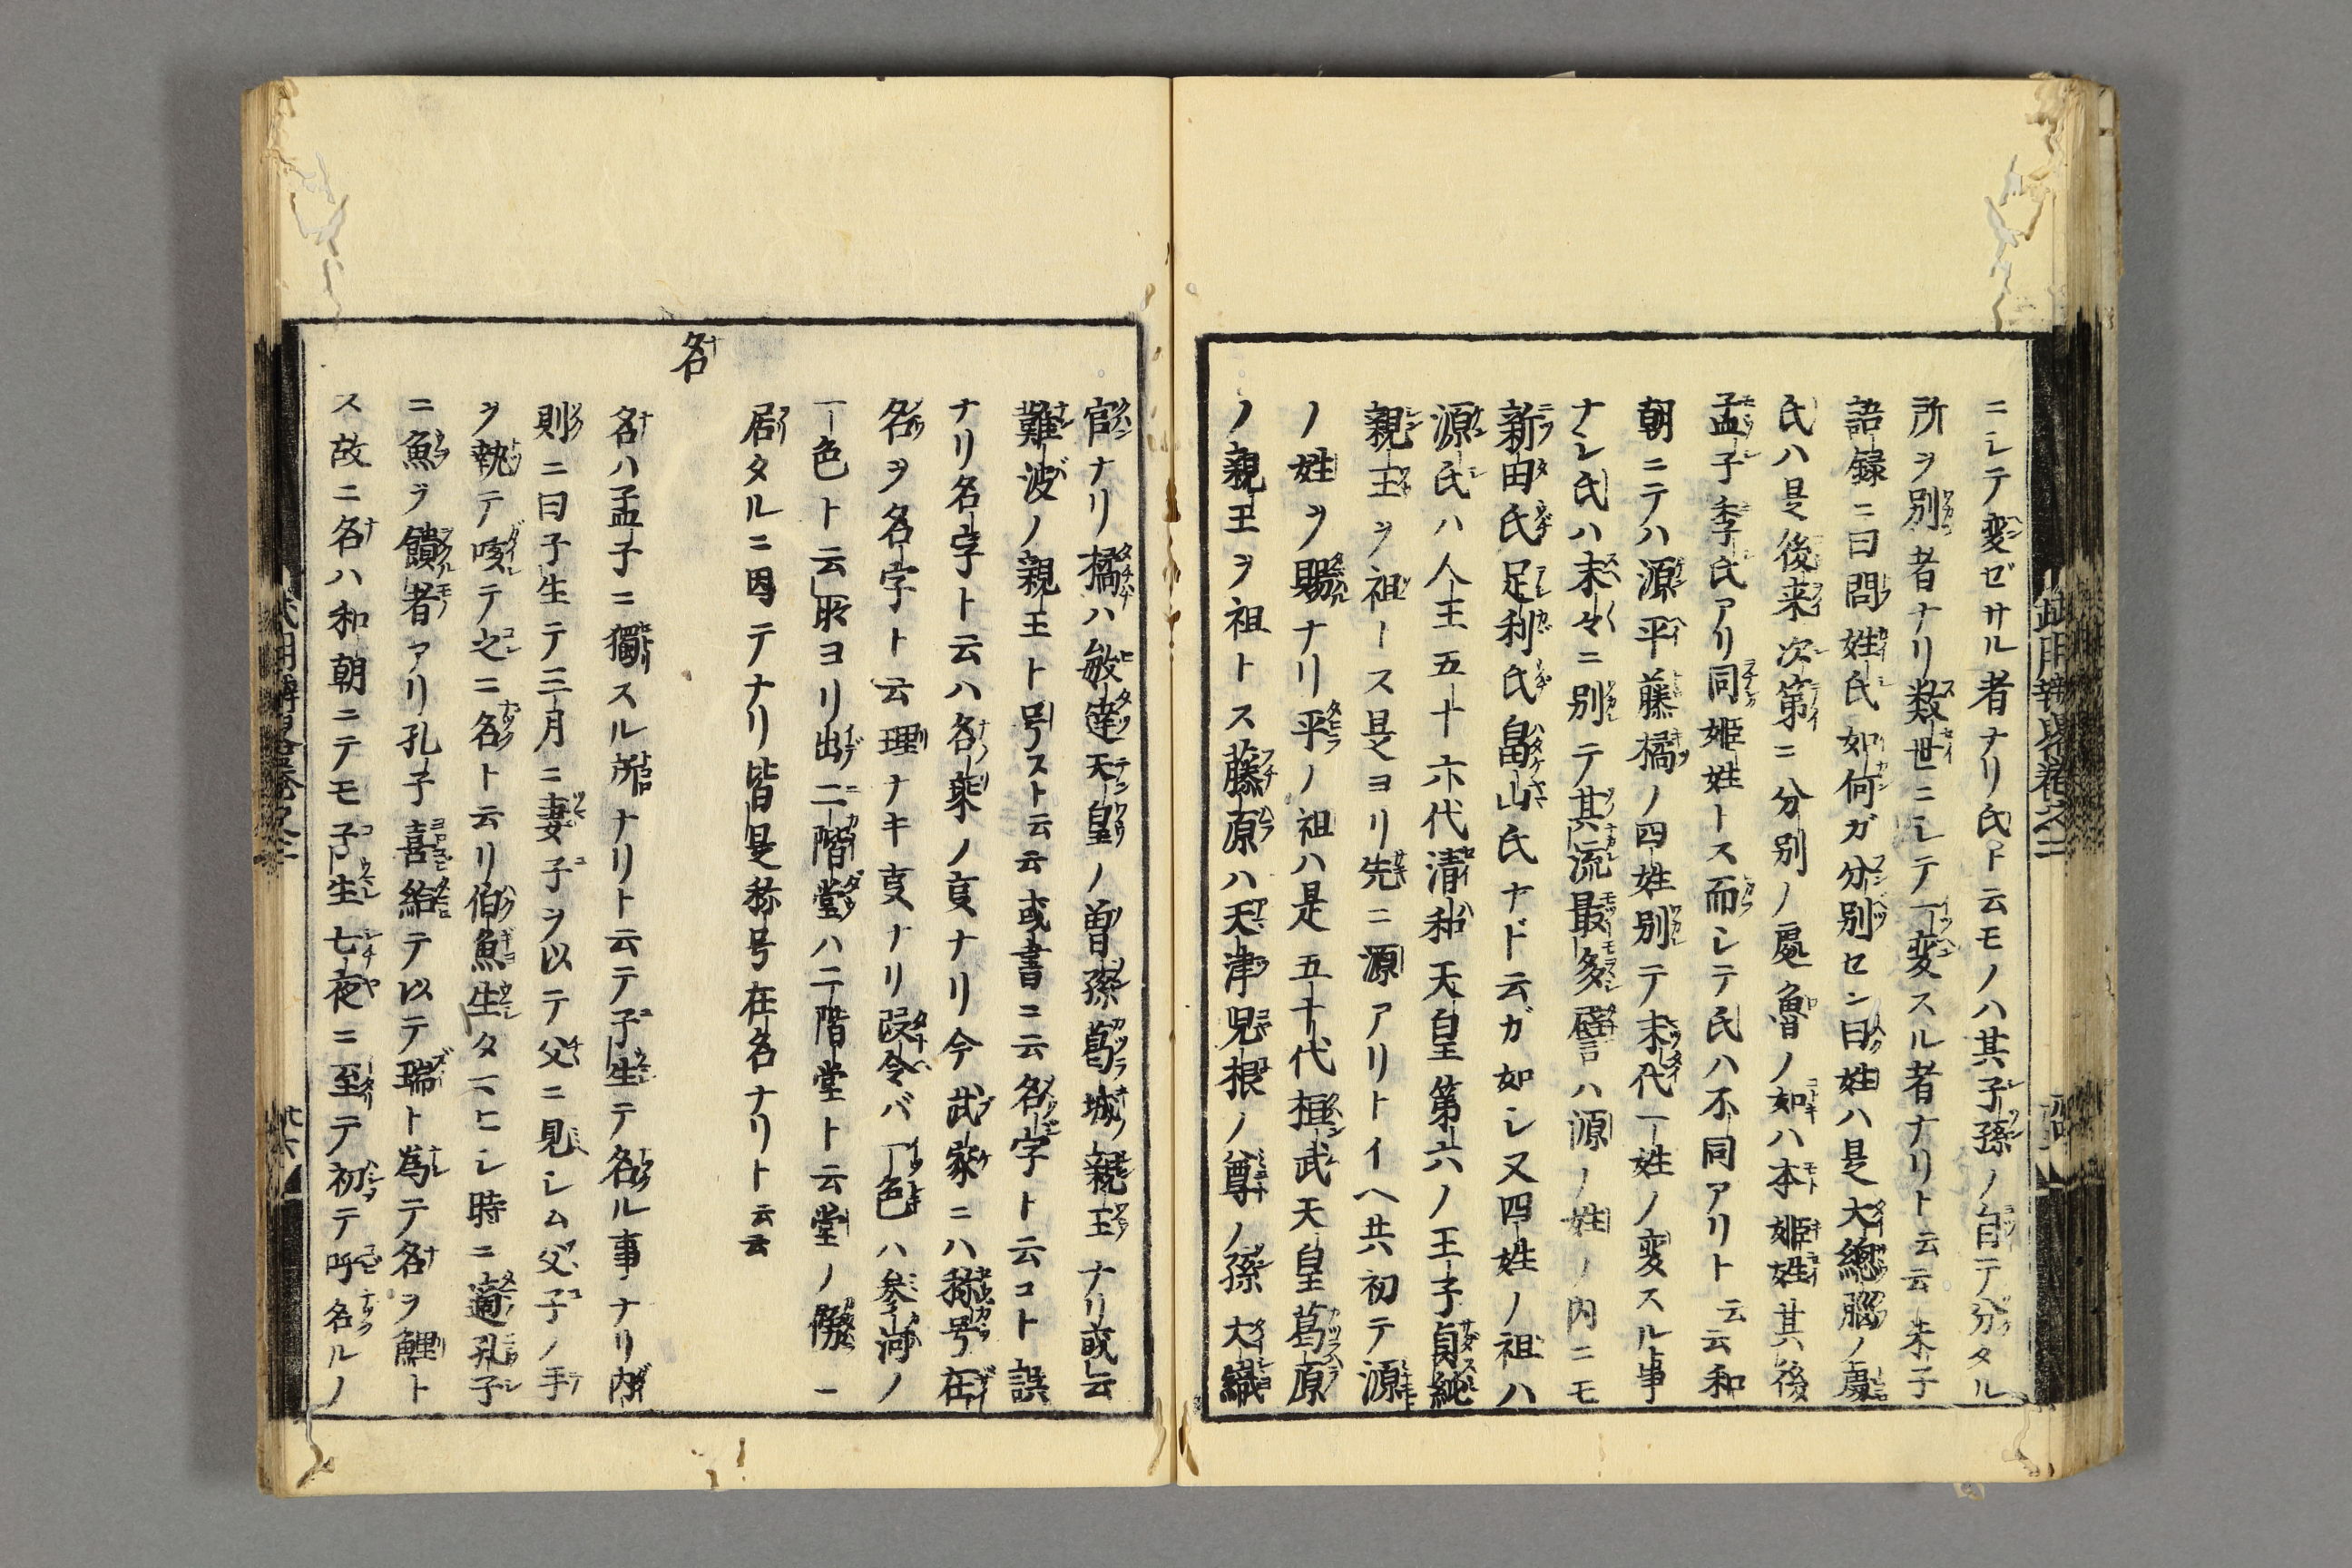 ニシテ変ゼサル者ナリ氏ト云モノハ其子孫ノ自テ分タル
所ヲ別者ナリ数世ニシテ一変スル者ナリト云云朱子
語録ニ曰問姓氏如何ガ分別セン曰姓ハ是大總腦ノ處
氏ハ是後来次第ニ分別ノ處魯ノ如ハ本姫姓其後
孟子季氏アリ同姫姓トス而シテ氏ハ不同アリト云云和
朝ニテハ源平藤橘ノ四姓別テ末代一姓ノ変スル事
ナシ氏ハ末々ニ別テ其流最多譬ハ源ノ姓ノ内ニモ
新田氏足利氏畠山氏ナド云ガ如シ又四姓ノ祖ハ
源氏ハ人王五十六代清和天皇第六ノ王子貞純
親王ヲ祖トス是ヨリ先ニ源アリトイヘ共初テ源
ノ姓ヲ賜ナリ平ノ祖ハ是五十代桓武天皇葛原
ノ親王ヲ祖トス藤原ハ天津児根ノ尊ノ孫大織
官ナリ橘ハ敏達天皇ノ曽孫葛城親王ナリ或云
難波ノ親王ト号スト云云或書ニ云名字ト云コト誤
ナリ名字ト云ハ名乗ノ亊ナリ今武家ニハ称号在
名ヲ名字ト云理ナキ亊ナリ設令バ一色ハ参河ノ
一色ト云所ヨリ出二階堂ハ二階堂ト云堂ノ傍ニ
居タルニ因テナリ皆是称号在名ナリト云云
名
名ハ孟子ニ獨スル所ナリト云テ子生テ名ル事ナリ内
則ニ曰子生テ三月ニ妻子ヲ以テ父ニ見シム父子ノ手
ヲ執テ咳テ之ニ名ト云リ伯魚生タマヒシ時ニ適孔子
ニ魚ヲ饋者アリ孔子喜給テ以テ瑞ト為テ名ヲ鯉ト
ス故ニ名ハ和朝ニテモ子生七夜ニ至テ初テ呼名ルノ